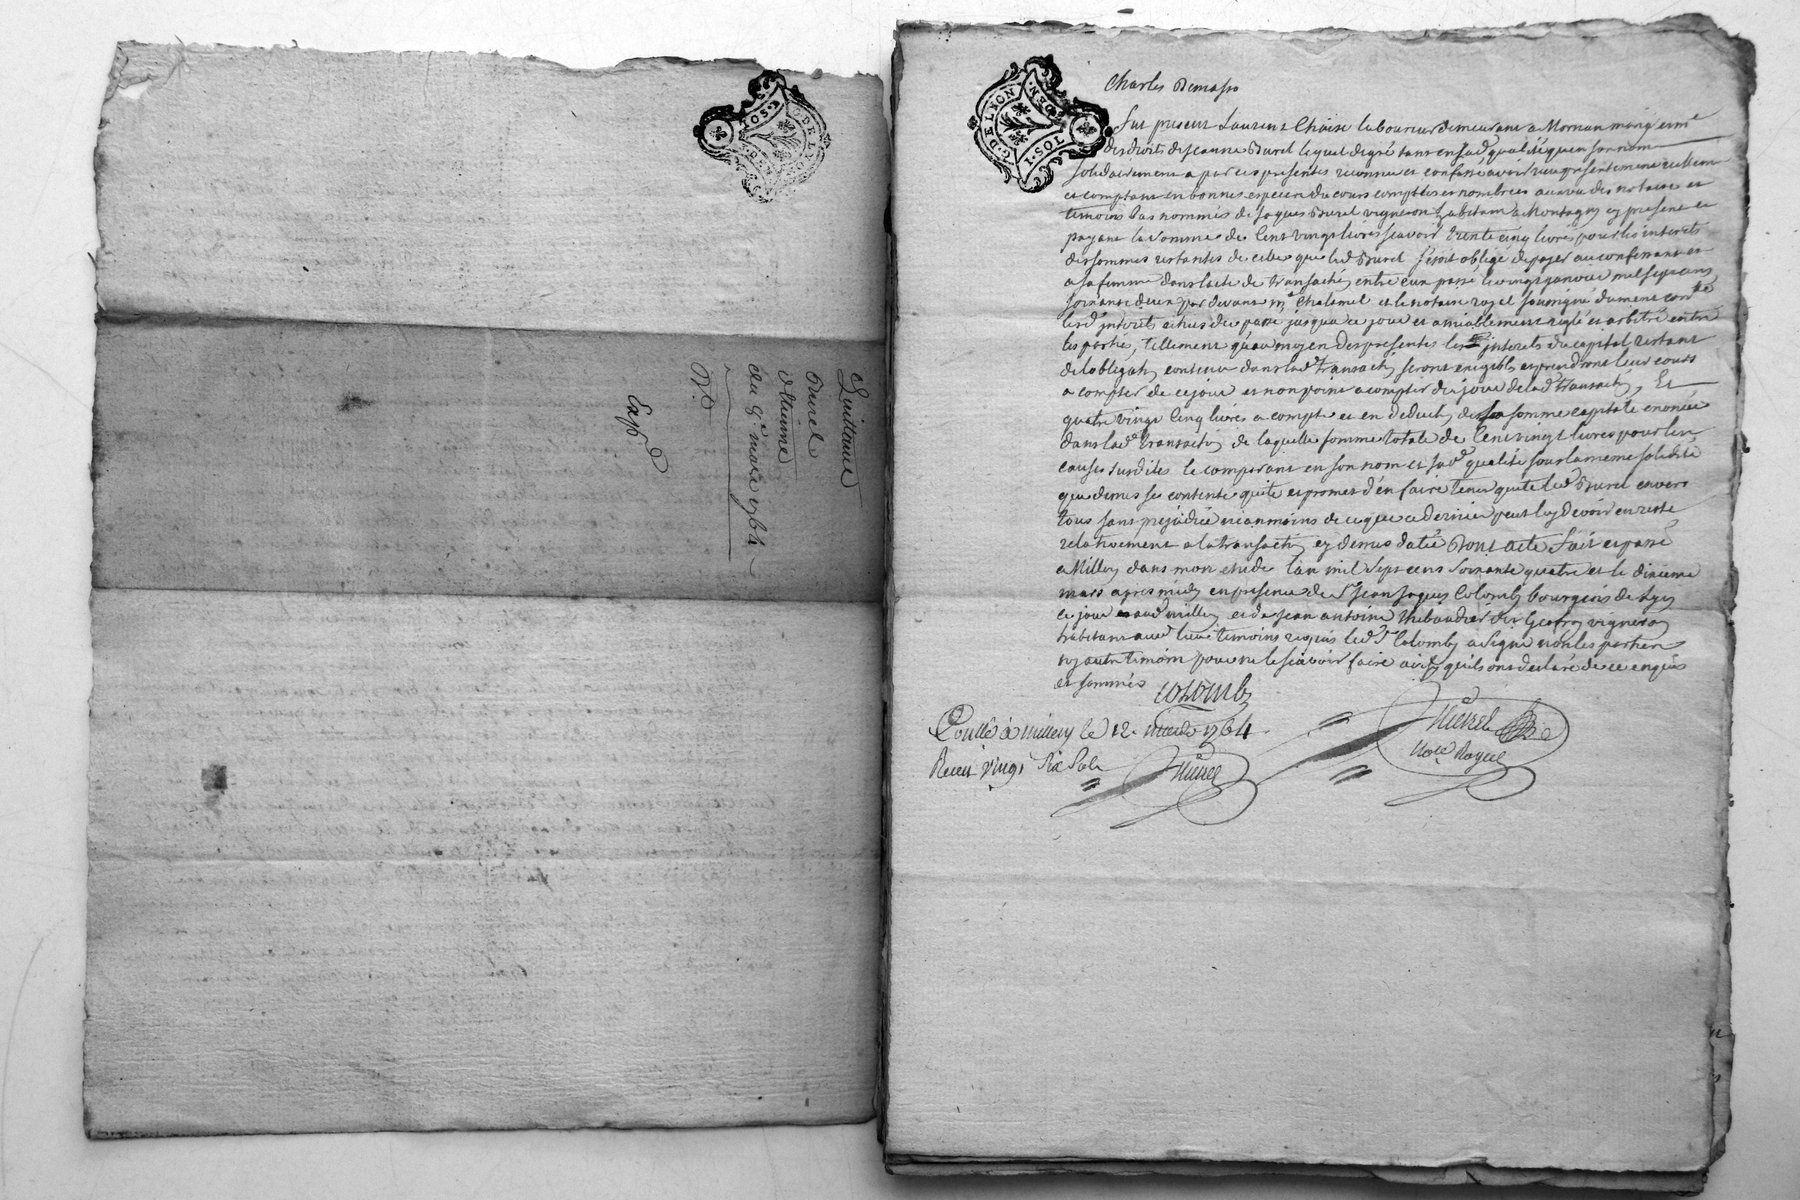 G. DE LYON
1 SOL
DEN.
Quittance
Burel
du 9e mars 1764
Exp
Charles Demasso
Fut present Laurens Choise laboureur demeurant a Mornan mary et me
des droits de Jeanne Burel lequel de gré tant en sad. qualité qu'en son nom
solidairement a par ces presentes reconnu et confessé avoir reçu présentement reellem
et comptant en bonnes especes du cours comptées et nombrées au vu des notaire et
temoins bas nommés de Jaques Burel vigneron habitant a Montagny cy present et
payant la somme de cent vingt livres scavoir trente cinq livres pour les interets
des sommes restantes de celle que led. Burel s'etoit obligé de payer au confessant et
a sa femme dans l'acte de transactn entre eux passé le vingt janvier mil sept cens
soixante deux par devant me Chalamel et le notaire royal soussigné dument conlé
lesd. interets echus du passé jusqu'a ce jour et amiablement reglé et arbitré entre
les partie, tellement qu'au moyen des presentes les interets du capital restant
de l'obligatn contenue dans lad. transactn seront exigibles et prendront leur cours
a compter de ce jour et non point a compter du jour de lad. transactn, Et
quatre vingt cinq livres a compte et en deductn de la somme capitale enoncée
dans lad. transactn de laquelle somme totale de cent vingt livres pour les
causes susdites le comparant en son nom et sad. qualité sous la meme solidité
que dessus se contente quite et promet d'en faire tenir quite led. Burel envers
tous sans prejudice neanmoins de ce que ce dernier peut luy devoir en reste
relativement a la transactn cy dessus datée Dont acte Fait et passé
a Millery dans mon etude l'an mil sept cens soixante quatre et le dixieme
mars apres midy en presence de Sr Jean Jaques Colomb bourgeois de Lyon
ce jour aud. millery et de Jean antoine Thibaudier dit Geofroy vigneron
habitant aud. lieu temoins requis led. Sr Colomb a signé non les parties
ny autre temoin pour ne le scavoir faire ainsy qu'ils ont declaré de ce enquis
et sommés
Colomb
Thevenet
Note Royal
Contlé à millery le 12. mars 1764
Recu vingt six sols